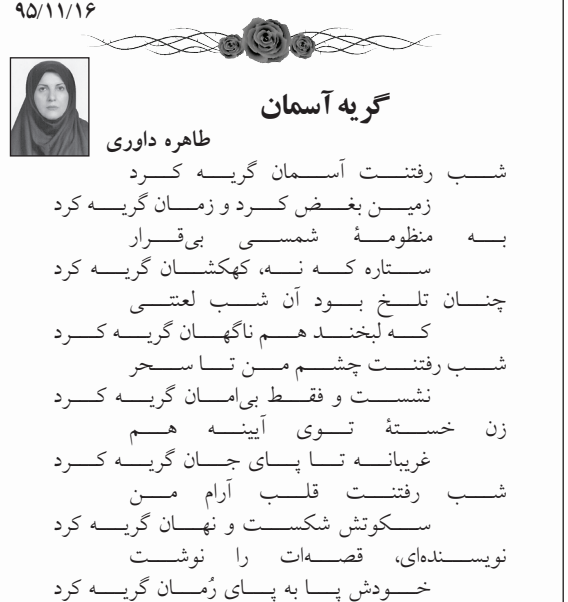 ۹۵/۱۱/۱۶
گریه آسمان
طاهره داوری
شب رفتنت آسمان گریه کرد
زمین بغض کرد و زمان گریه کرد
به منظومهٔ شمسی بی‌قرار
ستاره که نه، کهکشان گریه کرد
چنان تلخ بود آن شب لعنتی
که لبخند هم ناگهان گریه کرد
شب رفتنت چشم من تا سحر
نشست و فقط بی‌امان گریه کرد
زن خستهٔ توی آیینه هم
غریبانه تا پای جان گریه کرد
شب رفتنت قلب آرام من
سکوتش شکست و نهان گریه کرد
نویسنده‌ای، قصه‌ات را نوشت
خودش پا به پای رُمان گریه کرد